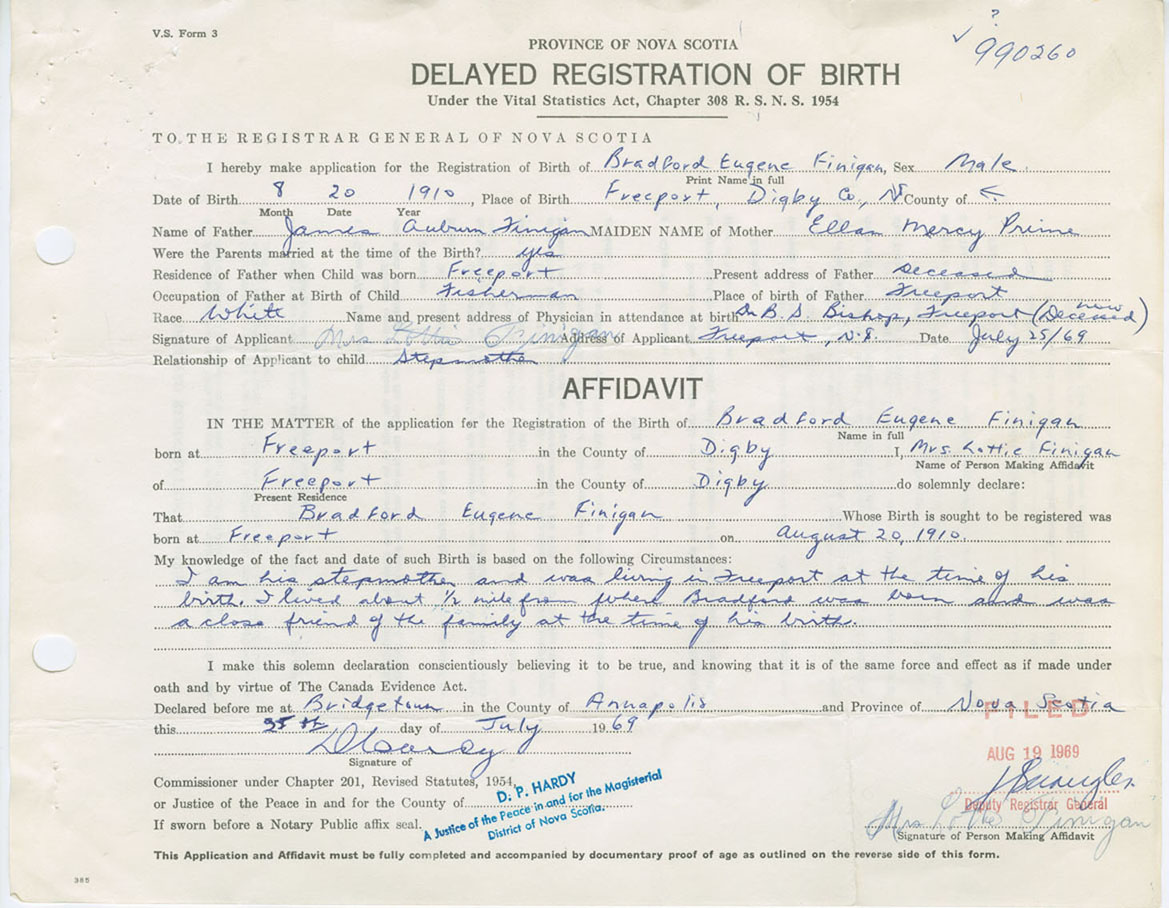 V.S. Form 3
?
✓ 990260
PROVINCE OF NOVA SCOTIA
DELAYED REGISTRATION OF BIRTH
Under the Vital Statistics Act, Chapter 308 R. S. N. S. 1954
TO THE REGISTRAR GENERAL OF NOVA SCOTIA
I hereby make application for the Registration of Birth of Bradford Eugene Finigan, Sex Male
Print Name in full
Date of Birth 8 20 1910, Place of Birth Freeport, Digby Co., NS County of
Month Date Year
Name of Father James Auburn Finigan MAIDEN NAME of Mother Ellan Mercy Prime
Were the Parents married at the time of the Birth? yes
Residence of Father when Child was born Freeport Present address of Father Deceased
Occupation of Father at Birth of Child Fisherman Place of birth of Father Freeport
Race White Name and present address of Physician in attendance at birth Dr B. S. Bishop, Freeport (now Deceased)
Signature of Applicant Mrs Lottie Finigan Address of Applicant Freeport, N.S. Date July 25/69
Relationship of Applicant to child Stepmother
AFFIDAVIT
IN THE MATTER of the application for the Registration of the Birth of Bradford Eugene Finigan
Name in full
born at Freeport in the County of Digby I, Mrs. Lottie Finigan
Name of Person Making Affidavit
of Freeport in the County of Digby do solemnly declare:
Present Residence
That Bradford Eugene Finigan Whose Birth is sought to be registered was
born at Freeport on August 20, 1910.
My knowledge of the fact and date of such Birth is based on the following Circumstances:
I am his stepmother and was living in Freeport at the time of his
birth. I lived about 1/2 mile from where Bradford was born and was
a close friend of the family at the time of his birth.
I make this solemn declaration conscientiously believing it to be true, and knowing that it is of the same force and effect as if made under
oath and by virtue of The Canada Evidence Act.
Declared before me at Bridgetown in the County of Annapolis and Province of Nova Scotia
FILED
this 25th day of July 1969
AUG 19 1969
Signature of
Commissioner under Chapter 201, Revised Statutes, 1954,
or Justice of the Peace in and for the County of
D. P. HARDY
A Justice of the Peace in and for the Magisterial
District of Nova Scotia.
Deputy Registrar General
If sworn before a Notary Public affix seal.
Mrs Lottie Finigan
Signature of Person Making Affidavit
This Application and Affidavit must be fully completed and accompanied by documentary proof of age as outlined on the reverse side of this form.
385